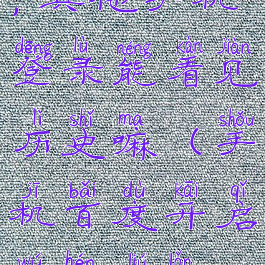 dēng lù néng kàn jiàn
登录能看见
lì shǐ ma shǒu
历史嘛（手
jī bǎi dù kāi qǐ
机百度开启
wú hén liú lǎn